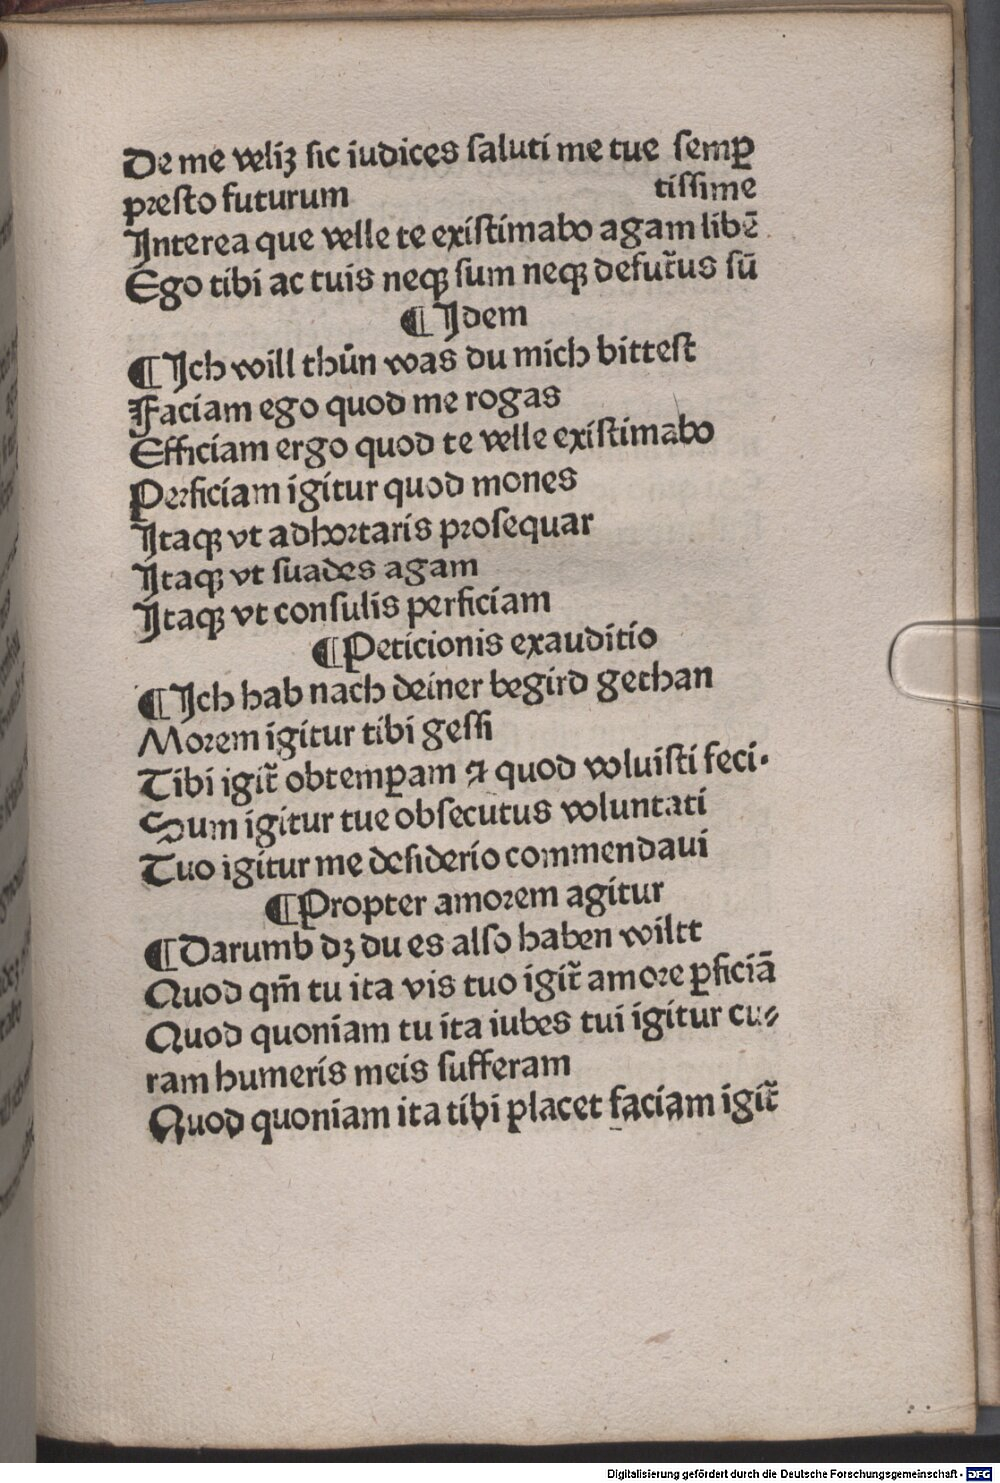 De me veliꝫ sic iudices saluti me tue semꝑ
presto futurum tissime
Interea que velle te existimabo agam libē
Ego tibi ac tuis neqꝫ sum neqꝫ defut᷑us sū
¶ Idem
¶ Ich will thůn was du mich bittest
Faciam ego quod me rogas
Efficiam ergo quod te velle existimabo
Perficiam igitur quod mones
Itaqꝫ vt adhortaris prosequar
Itaqꝫ vt suades agam
Itaqꝫ vt consulis perficiam
¶ Peticionis exauditio
¶ Ich hab nach deiner begird gethan
Morem igitur tibi gessi
Tibi igit᷑ obtemꝑam ⁊ quod voluisti feci.
Sum igitur tue obsecutus voluntati
Tuo igitur me desiderio commendaui
¶ Propter amorem agitur
¶ Darumb dꝫ du es also haben wiltt
Quod qm̄ tu ita vis tuo igit᷑ amore ꝑficiā
Quod quoniam tu ita iubes tui igitur cu⸗
ram humeris meis sufferam
Quod quoniam ita tibi placet faciam igit᷑
Digitalisierung gefördert durch die Deutsche Forschungsgemeinschaft - DFG